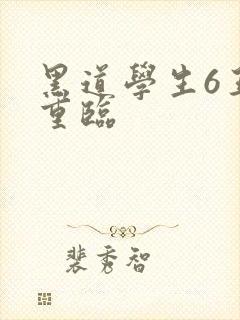 黑道學生6
重臨
裴秀智